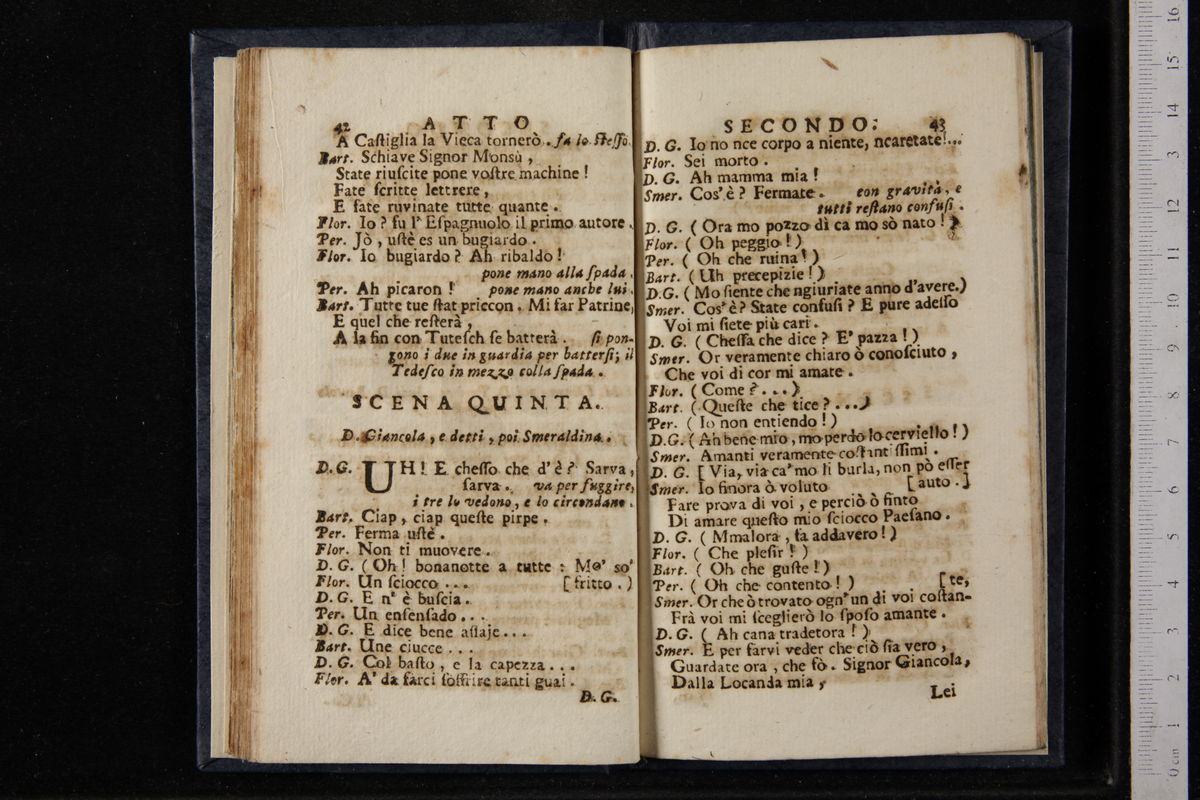 42 ATTO
A Caſtiglia la Vieca tornerò. fa lo ſteſſo.
Bart. Schiave Signor Monsù,
State riuſcite pone voſtre machine!
Fate ſcritte lettrere,
E fate ruvinate tutte quante.
Flor. Io? fu l' Eſpagnuolo il primo autore.
Per. Jò, uſtè es un bugiardo.
Flor. Io bugiardo? Ah ribaldo!
pone mano alla ſpada.
Per. Ah picaron! pone mano anche lui.
Bart. Tutte tue ſtat priccon. Mi far Patrine,
E quel che reſterà,
A la fin con Tuteſch ſe batterà. ſi pon-
gono i due in guardia per batterſi; il
Tedeſco in mezzo colla ſpada.
SCENA QUINTA.
D. Giancola, e detti, poi Smeraldina.
D.G. UH! E cheſſo che d'è? Sarva,
ſarva. va per fuggire,
i tre lo vedono, e lo circondano.
Bart. Ciap, ciap queſte pirpe.
Per. Ferma uſtè.
Flor. Non ti muovere.
D. G. (Oh! bonanotte a tutte: Mo' so'
Flor. Un ſciocco... [fritto.)
D. G. E n' è buſcia.
Per. Un enſenſado...
D. G. E dice bene aſſaje...
Bart. Une ciucce...
D. G. Col baſto, e la capezza...
Flor. A' da farci ſoffrire tanti guai.
D. G.
SECONDO. 43
D. G. Io no nce corpo a niente, ncaretate!...
Flor. Sei morto.
D. G. Ah mamma mia!
Smer. Cos'è? Fermate. con gravità, e
tutti reſtano confuſi.
D. G. (Ora mo pozzo dì ca mo sò nato!)
Flor. (Oh peggio!)
Per. (Oh che ruina!)
Bart. (Uh precepizie!)
D.G. (Mo ſiente che ngiuriate anno d'avere.)
Smer. Cos'è? State confuſi? E pure adeſſo
Voi mi ſiete più cari.
D. G. (Cheſſa che dice? E' pazza!)
Smer. Or veramente chiaro ò conoſciuto,
Che voi di cor mi amate.
Flor. (Come?...)
Bart. (Queſte che tice?...)
Per. (Io non entiendo!)
D.G. (Ah bene mio, mo perdo lo cerviello!)
Smer. Amanti veramente coſtantiſſimi.
D. G. [Via, via ca' mo li burla, non pò eſſer
Smer. Io finora ò voluto [auto.]
Fare prova di voi, e perciò ò finto
Di amare queſto mio ſciocco Paeſano.
D. G. (Mmalora, fa addavero!)
Flor. (Che pleſir!)
Bart. (Oh che guſte!)
Per. (Oh che contento!) [te,
Smer. Or che ò trovato ogn'un di voi coſtan-
Frà voi mi ſceglierò lo ſpoſo amante.
D. G. (Ah cana tradetora!)
Smer. E per farvi veder che ciò ſia vero,
Guardate ora, che fò. Signor Giancola,
Dalla Locanda mia,
Lei
0 cm 1 2 3 4 5 6 7 8 9 10 11 12 13 14 15 16